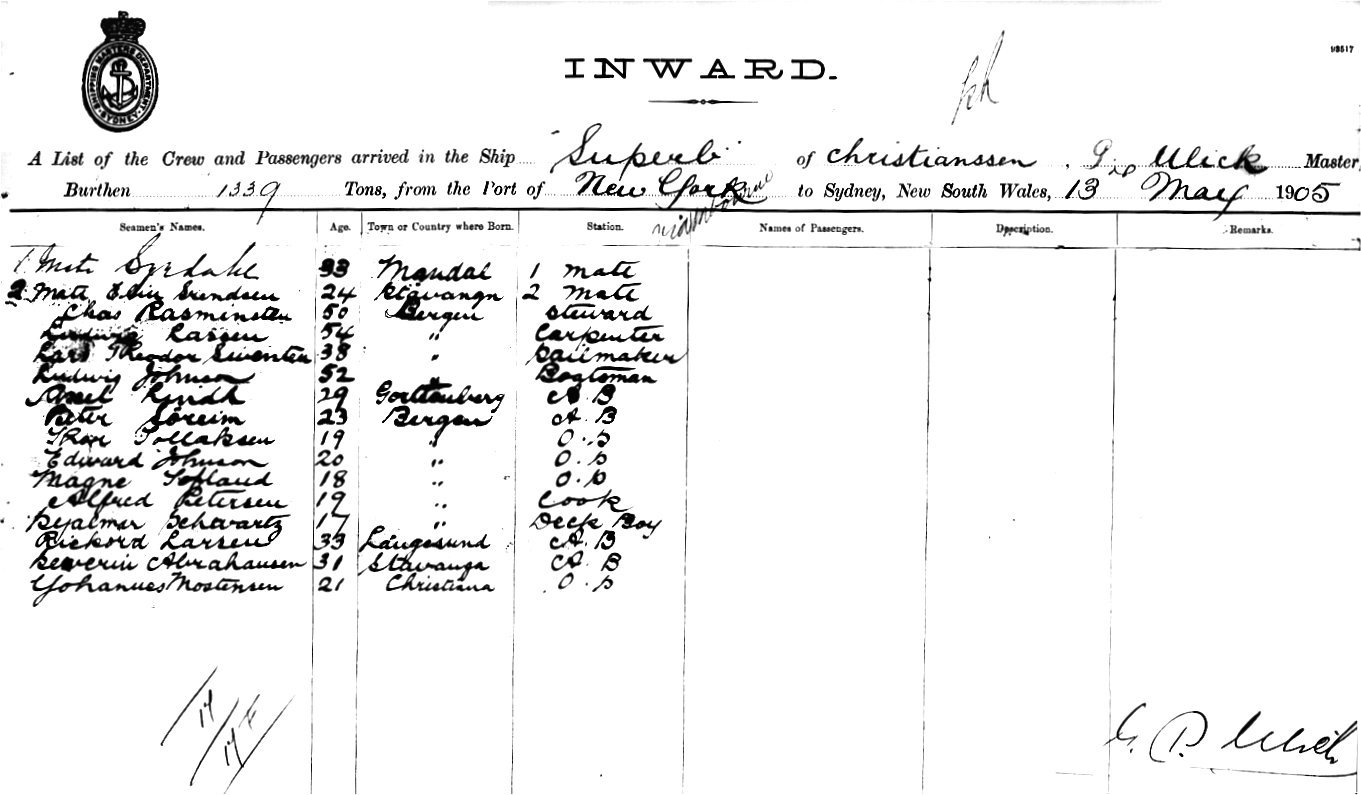 SHIPPING MASTERS DEPARTMENT
SYDNEY
98517
INWARD.
A List of the Crew and Passengers arrived in the Ship "Superb" of Christianssen, G P Ulick Master,
Burthen 1339 Tons, from the Port of New York to Sydney, New South Wales, 13 May 1905
Seamen's Names. Age. Town or Country where Born. Station. Names of Passengers. Description. Remarks.
1 Mate 33 Mandal 1 Mate
2 Mate 24 Stavangn 2 Mate
Chas Rasminsten 50 Bergen Steward
Ludwig Larsen 54 " Carpenter
Lars Theodor Siventen 38 " Sailmaker
Ludwig Johnson 52 " Bogtsman
Axel Lindh 29 Gorttenberg A B
Peter Soreim 23 Bergen A B
Thor Tollaksen 19 " O.S
Edward Johnson 20 " O.S
Magne Topland 18 " O.S
Alfred Petersen 19 " Cook
Hjalmar Schwartz 17 " Deck Boy
Rickord Larsen 33 Langesund A.B
Severin Abrahausen 31 Stavanga A.B
Yohannes Mostensen 21 Christiana O.S
17
17 F
G. P. Ulick